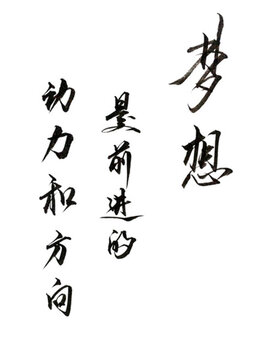 梦想
是前进的
动力和方向